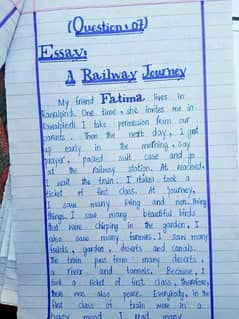 (Question: 07)
Essay:
A Railway Journey
My friend Fatima lives in
Rawalpindi. One time, she invites me in
Rawalpindi. I take permission from our
parents. Then the next day, I get
up early in the morning, say
prayer, packed suit case and go
at the railway station. At reached,
I wait the train. I takes took a
ticket of first class. At journey,
I saw many living and non-living
things. I saw many beautiful birds
that were chirping in the garden. I
also saw many farmers. I saw many
fields, garden, deserts and canals.
The train pass from many deserts,
a river and tunnels. Because, I
took a ticket of first class, therefore,
there was also peace. Everybody, in the
first class of train were in a
happy mood. I read many